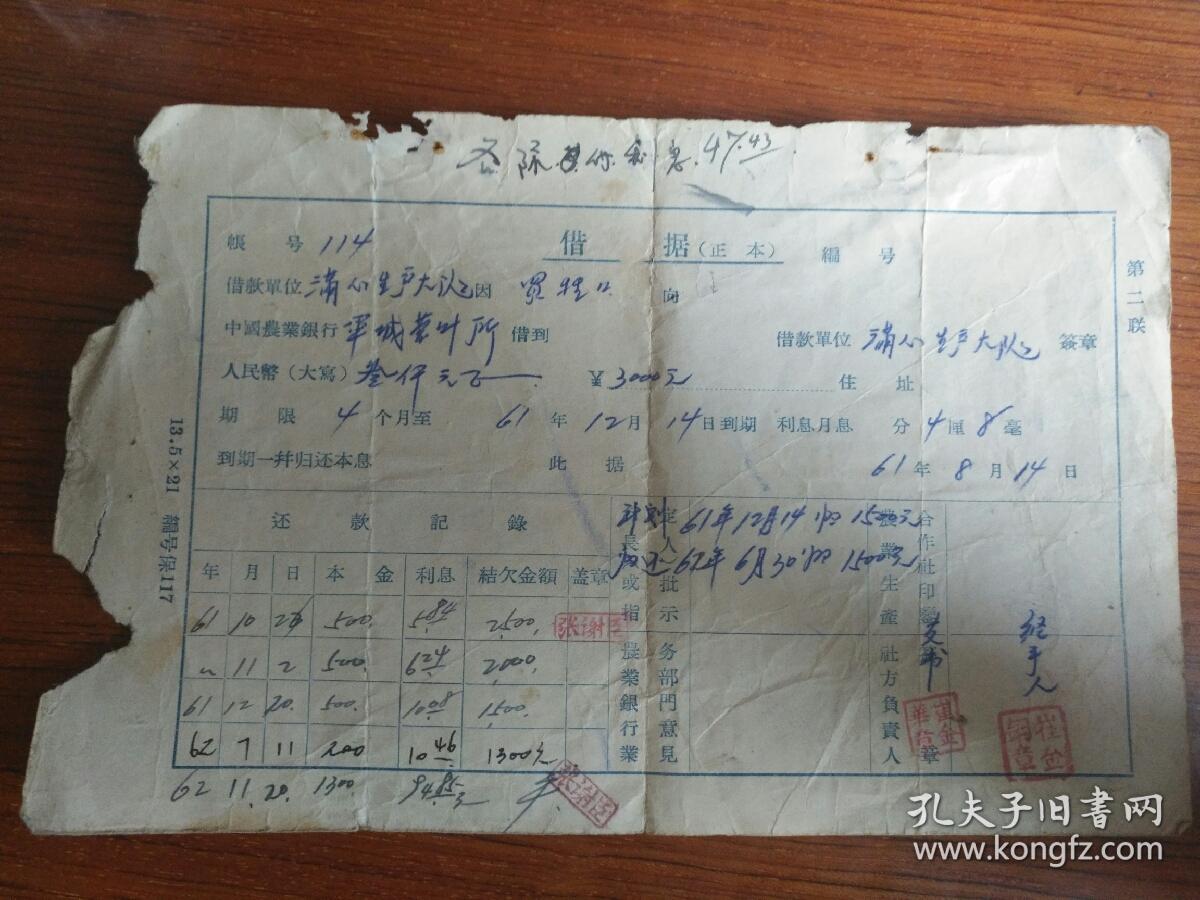 各除其仆利息 47.43
帳号 114 借据(正本) 編号
借款單位 满心生产大队 因 買牲口 向
中國農業銀行 軍城营业所 借到 借款單位 满心生产大队 簽章
人民幣(大寫) 叁仟元正 ¥ 3000元 住址
期限 4 个月至 61 年 12 月 14 日到期 利息月息 分 4 厘 8 毫
到期一幷归还本息 此据 61 年 8 月 14 日
第二联
13.5×21 編号保117
还款記錄
年 月 日 本金 利息 結欠金額 盖章
61 10 500. 5.84 2,500.
〃 11 2 500. 6.24 2,000.
61 12 20. 500. 10.08 1,500.
62 7 11 200 10.46 1300元
62 11. 20. 1300 94.85元
計划 61年12月14归1500元
归还 62年6月30归1500元
社長或指定人批示
農業銀行業务部門意見
農業生產合作社印鑑
社方負責人章
支书
经手人
孔夫子旧书网
www.kongfz.com